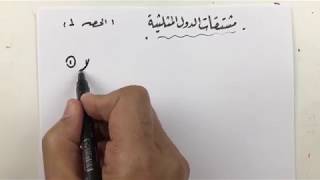 مشتقات الدول المثلثية . ( الحصه ١ )
①